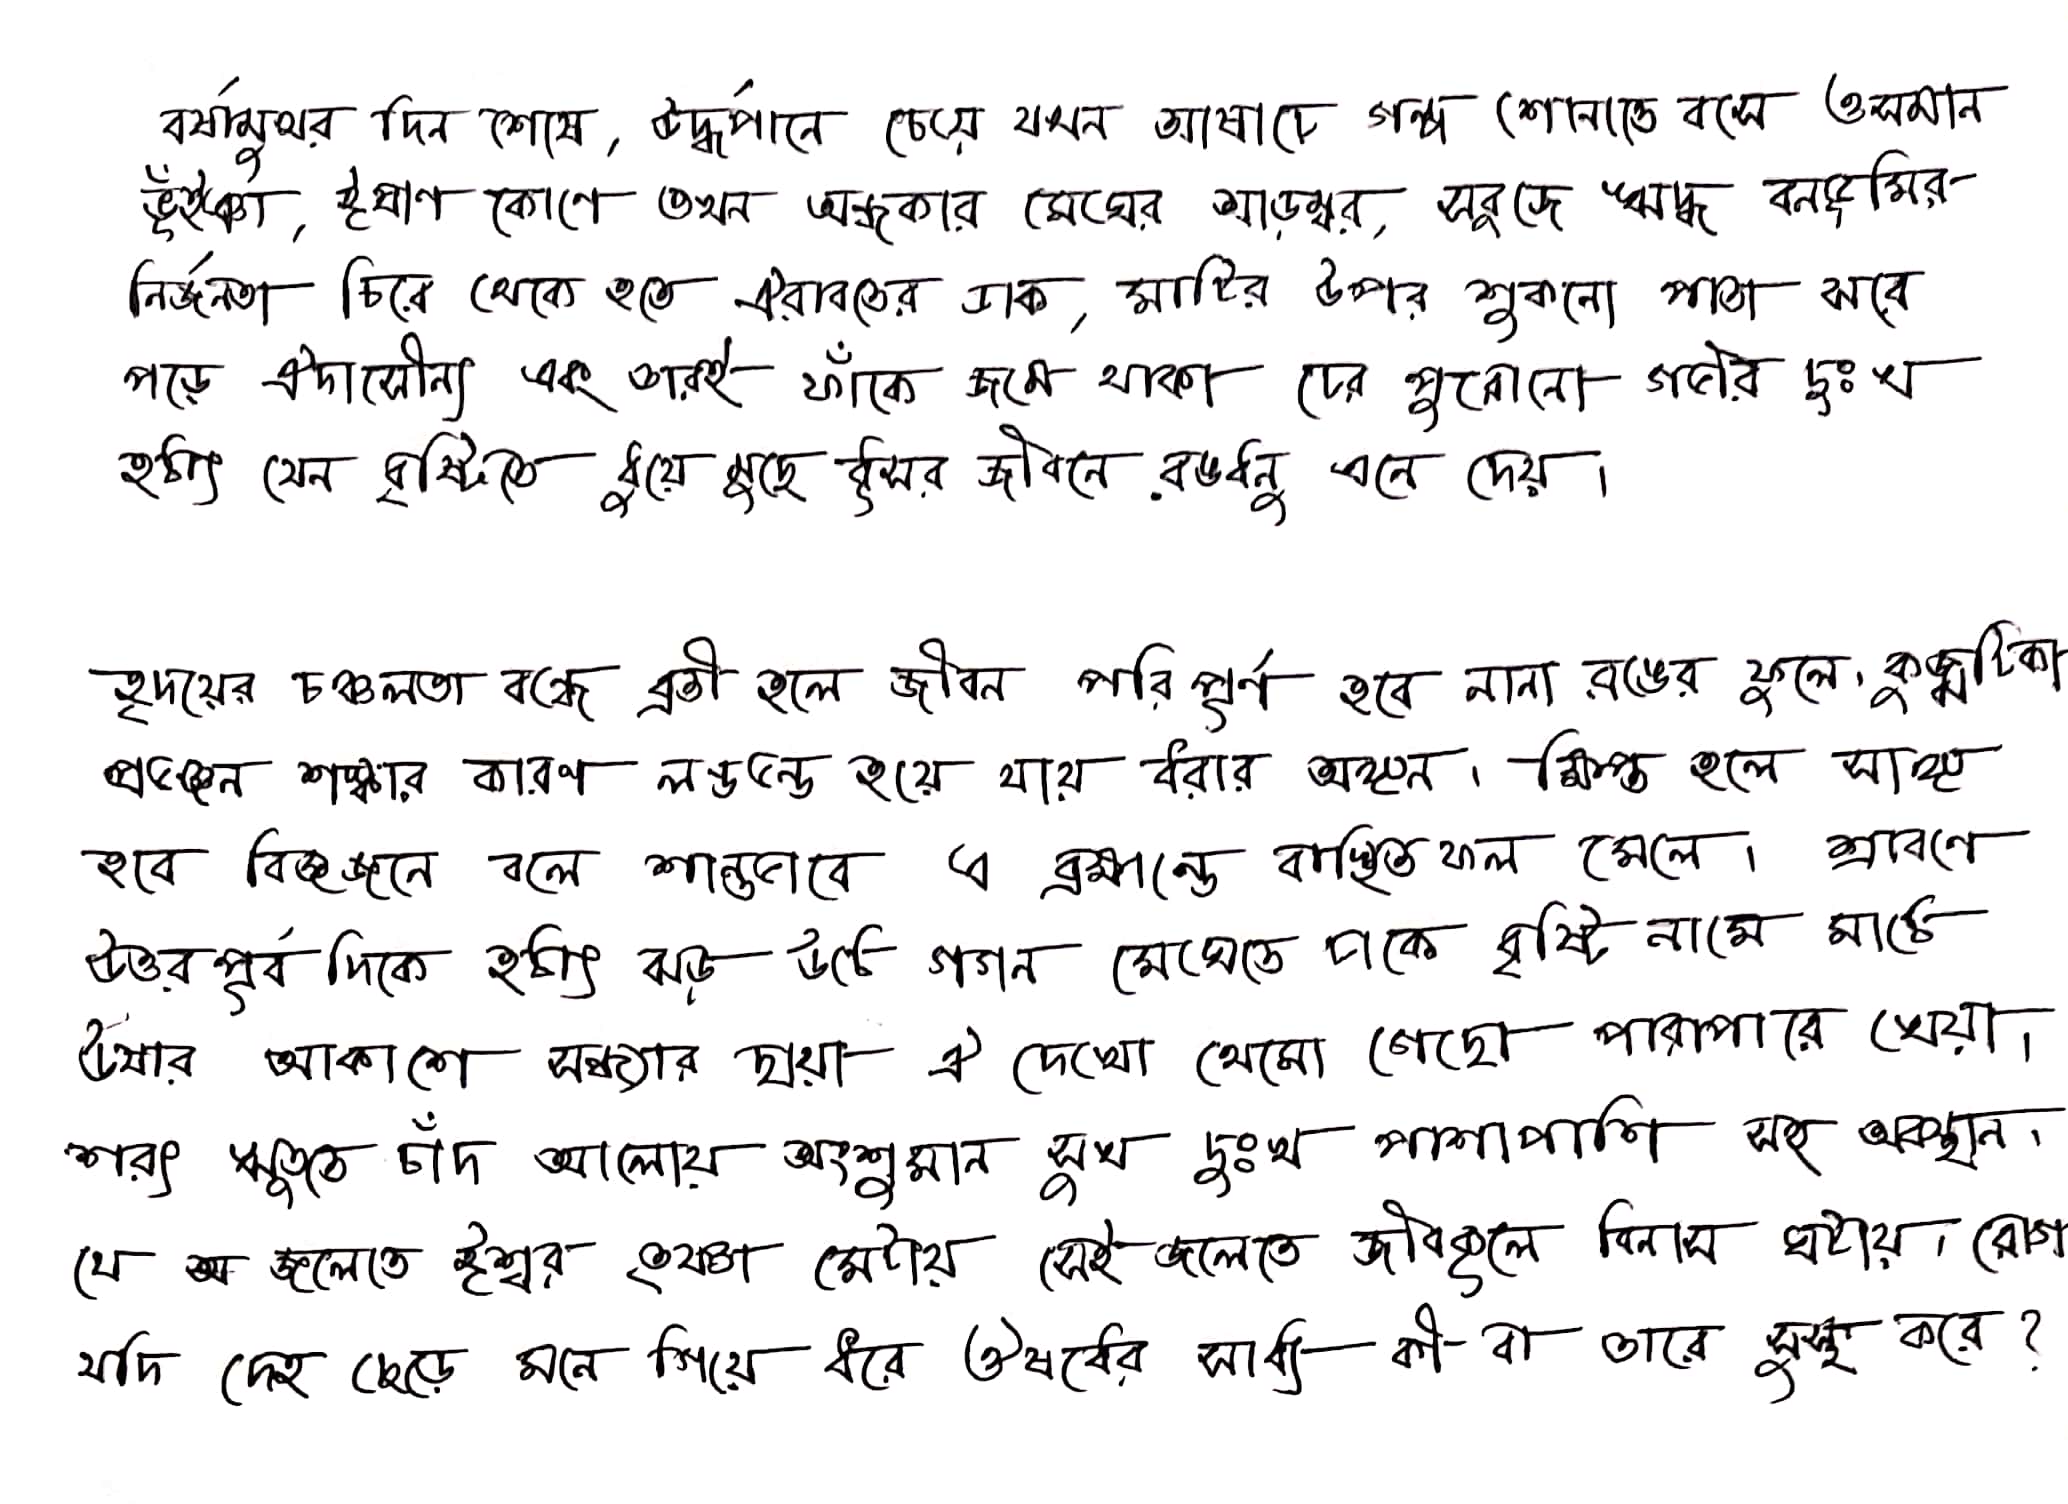 বর্ষামুখর দিন শেষে, ঊর্দ্ধপানে চেয়ে যখন আষাঢ়ে গল্প শোনাতে বসে ওসমান
ভুঁইঞা, ঈষাণ কোণে তখন অন্ধকার মেঘের আড়ম্বর, সবুজে ঋদ্ধ বনভূমির
নির্জনতা চিরে থেকে হতে ঐরাবতের ডাক, মাটির উপর শুকনো পাতা ঝরে
পড়ে ঐদাসৌন্য এবং তারই ফাঁকে জমে থাকা ঢের পুরোনো গভীর দুঃখ
হঠাৎ যেন বৃষ্টিতে ধুয়ে মুছে ধূসর জীবনে রঙধনু এনে দেয়।
হৃদয়ের চঞ্চলতা বন্ধে ব্রতী হলে জীবন পরিপূর্ণ হবে নানা রঙের ফুলে। কুজ্ঝটিকা
প্রভঞ্জন শঙ্কার কারণ লণ্ডভণ্ড হয়ে যায় ধরার অঙ্গন। ক্ষিপ্ত হলে সাঙ্গ
হবে বিজ্ঞজনে বলে শান্তভাবে এ ব্রহ্মান্ডে বাঞ্ছিত ফল মেলে। শ্রাবণে
উত্তর পূর্ব দিকে হঠাৎ ঝড় উঠে গগন মেঘেতে ঢাকে বৃষ্টি নামে মাঠে
ঊষার আকাশে সন্ধ্যার ছায়া ঐ দেখো থেমে গেছে পারাপারে খেয়া।
শরৎ ঋতুতে চাঁদ আলোয় অংশুমান সুখ দুঃখ পাশাপাশি সহ অবস্থান।
যে জলেতে ঈশ্বর তৃষ্ণা মেটায় সেই জলেতে জীবকূলে বিনাস ঘটায়। রোগ
যদি দেহ ছেড়ে মনে গিয়ে ধরে ঔষধের সাধ্য কী বা তারে সুস্থ করে?